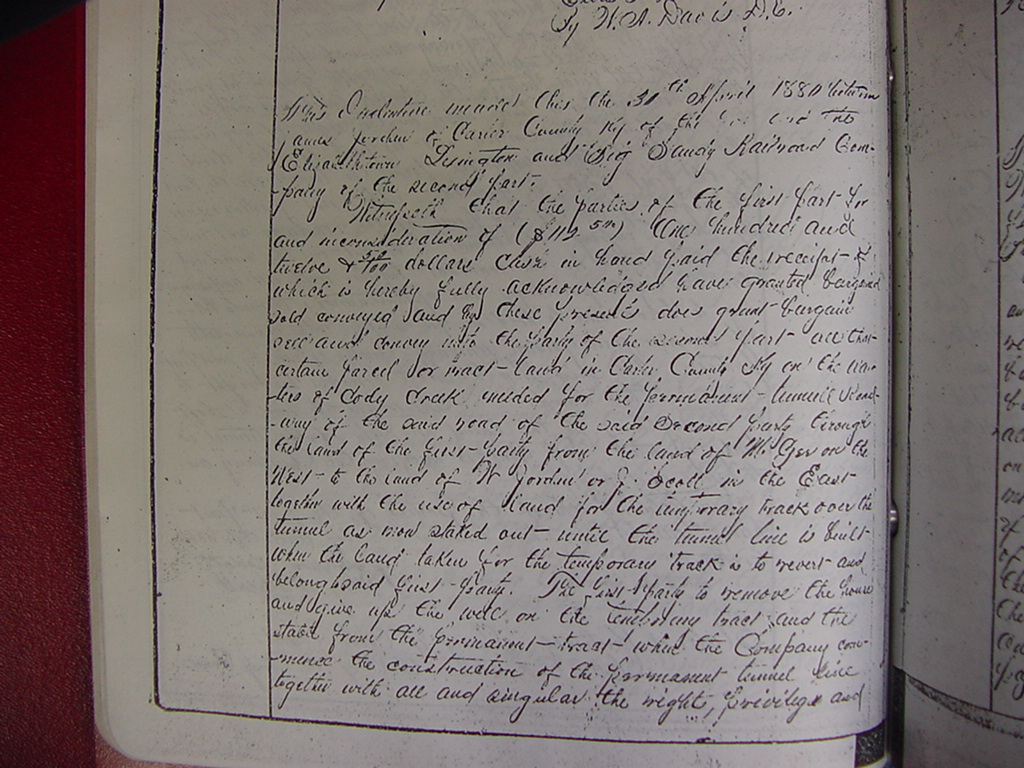 By W. A. Davis D.C.
This Indenture made this the 30th April 1880 between
James Jordan of Carter County Ky of the and the
Elizabethtown Lexington and Big Sandy Railroad Com-
-pany of the second part.
Witnesseth that the parties of the first part for
and inconsideration of ($112 50/100) One hundred and
twelve & 50/100 dollars cash in hand paid the receipt of
which is hereby fully acknowledged have granted bargained
sold conveyed and by these presents does grant bargain
sell and convey unto the party of the second part all that
certain parcel or tract land in Carter County Ky on the wa-
-ters of Cody Creek needed for the permanent tunnel & road-
-way of the said road of the said Second party through
the land of the first party from the land of on the
West to the land of W Jordan or J. Scott in the East
together with the use of land for the temporary track over the
tunnel as now staked out until the tunnel line is built
when the land taken for the temporary track is to revert and
belong said first party. The first party to remove the house
and give up the well on the temporary tract and the
stable from the permanent tract when the Company com-
-mence the construction of the permanent tunnel line
together with all and singular the right, privilege and